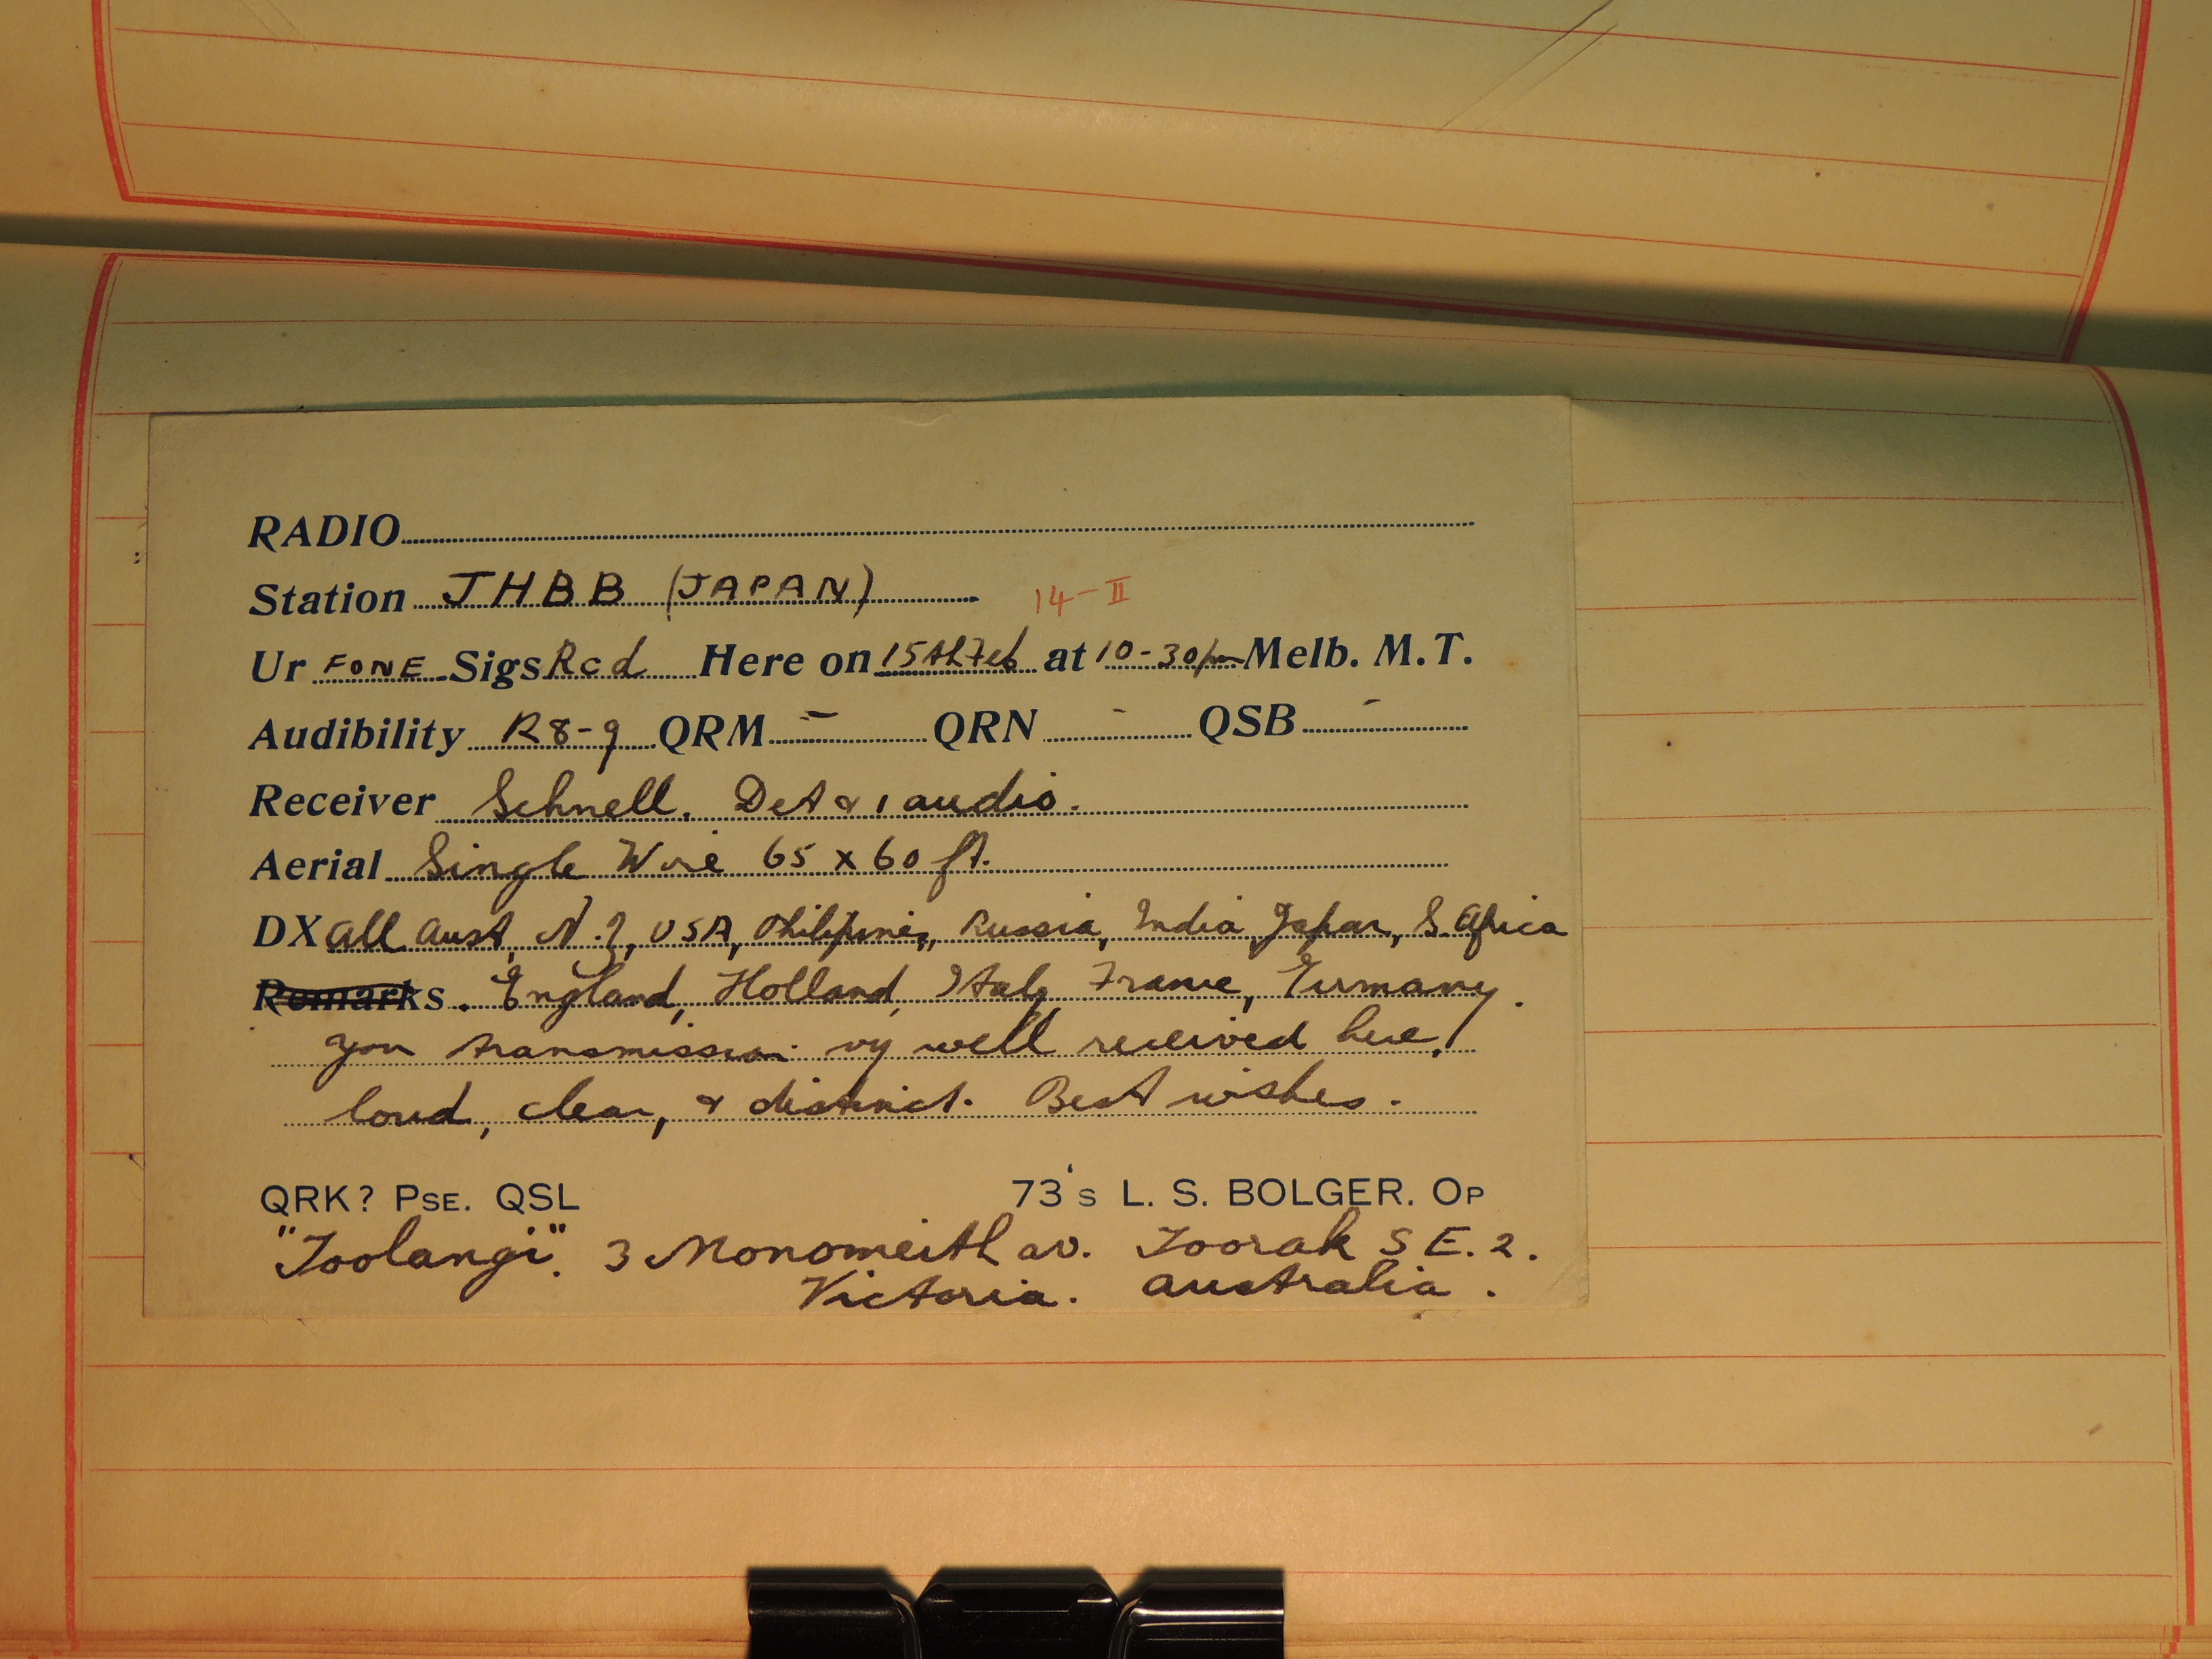 RADIO
Station JHBB (JAPAN) 14-II
Ur FONE Sigs Rcd Here on 15th Feb at 10-30pm Melb. M.T.
Audibility R8-9 QRM - QRN - QSB -
Receiver Schnell. Det & 1 audio.
Aerial Single Wire 65 x 60 ft.
DX all Aust, N.Z, USA, Philipines, Russia, India, Japan, S. Africa
Remarks. England, Holland, Italy, France, Germany.
your transmission vy well received here,
loud, clear, & distinct. Best wishes.
QRK? PSE. QSL 73's L. S. BOLGER. OP
"Toolangi". 3 Monomeith av. Toorak S E. 2.
Victoria. Australia.